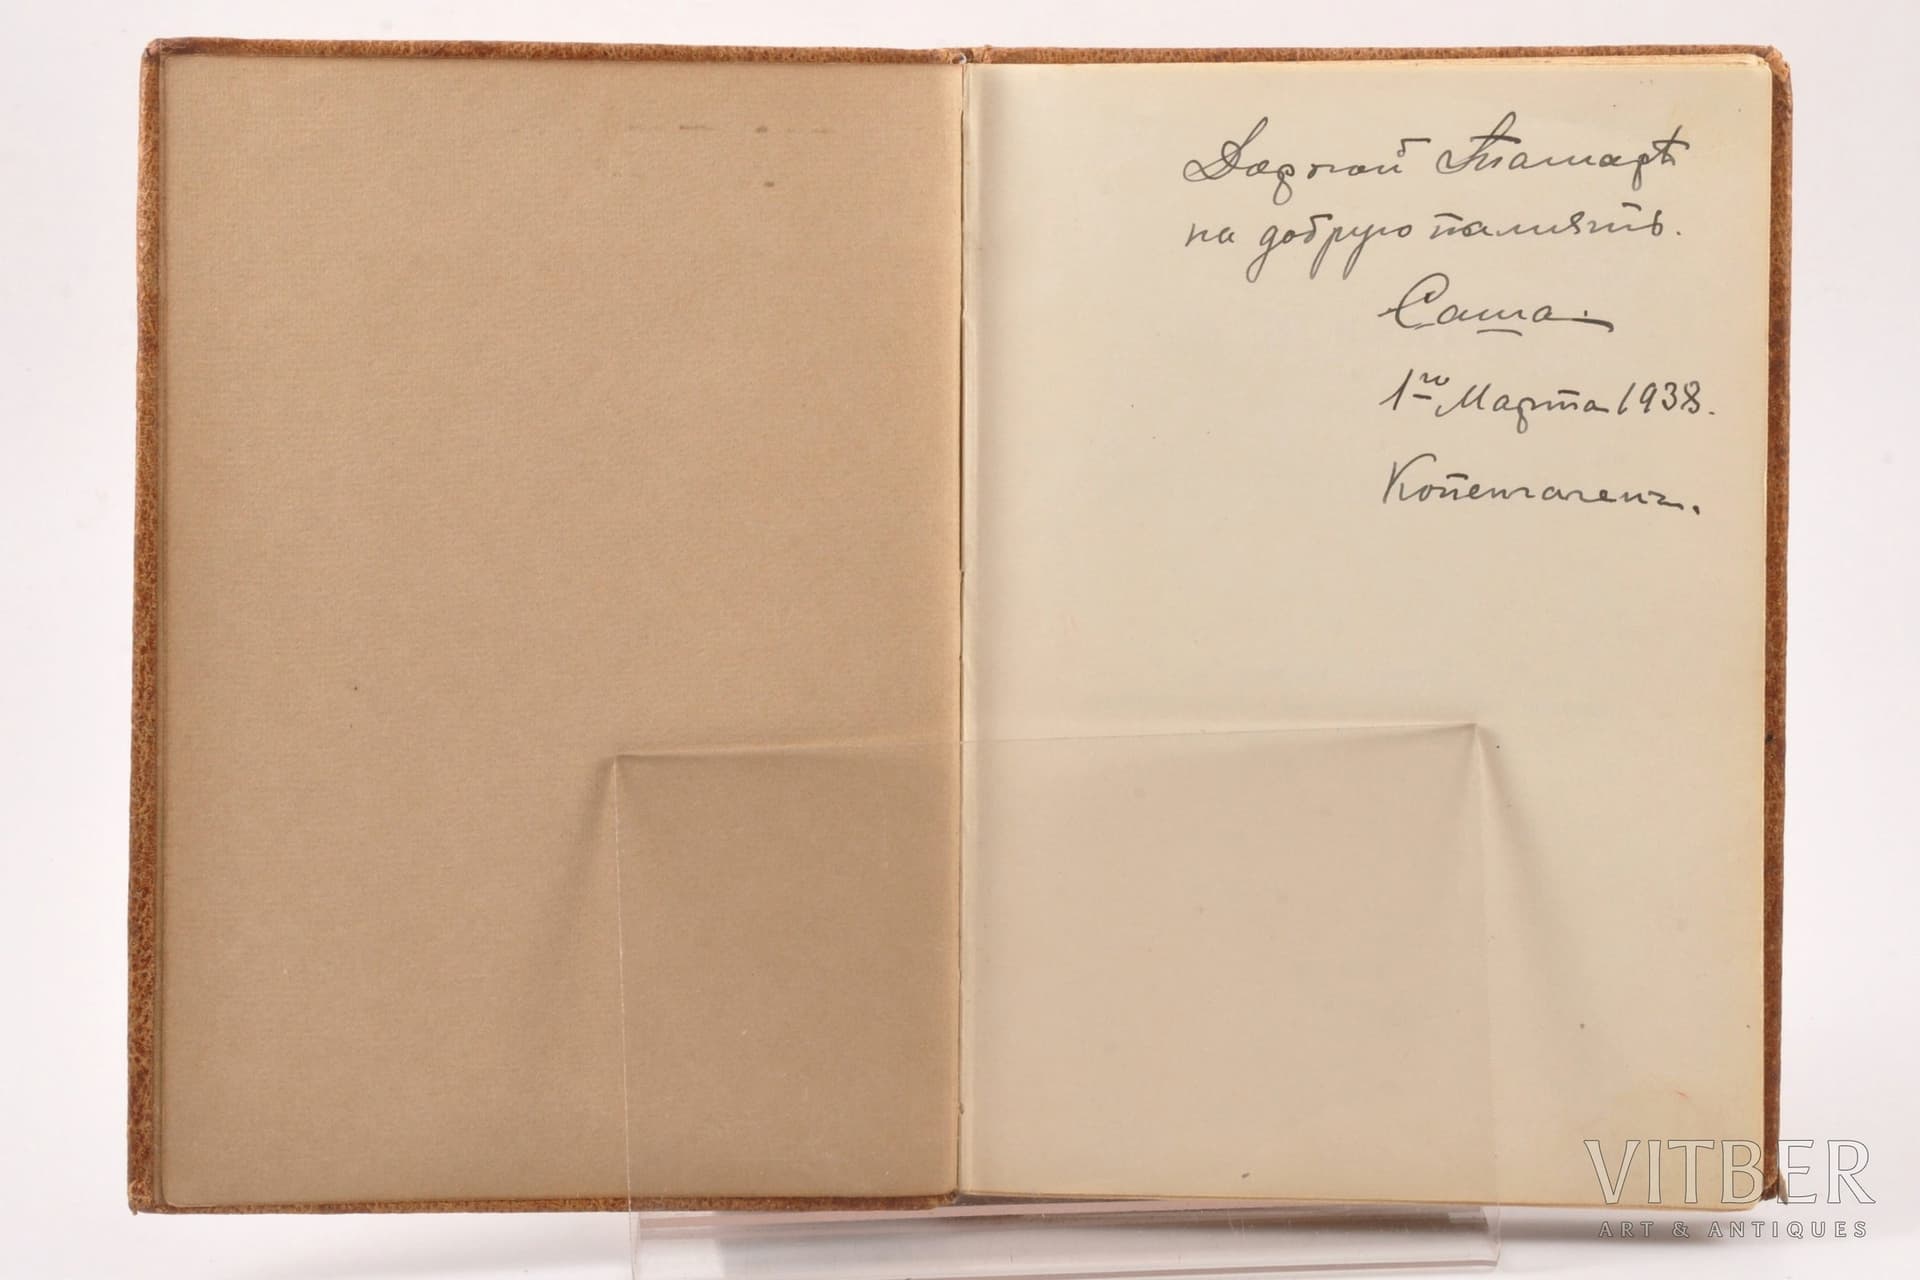 Дорогой Тамарѣ
на добрую память.
Саша.
1го Марта 1938.
Копенгагенъ.
VITBER
ART & ANTIQUES